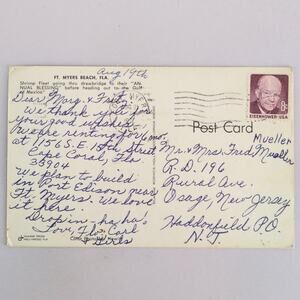 FT. MYERS BEACH, FLA.
Shrimp Fleet going thru drawbridge to their "AN-
NUAL BLESSING" before heading out to the Gulf
of Mexico.
Aug 19th
Dear Marg. & Fritz,
We thank you for
your good wishes.
We are renting for 6 mo.
at 156 S.E. 15th Street
Cape Coral, Fla
33904
We plan to build
in Port Edison near
Ft Myers. We love
it here.
Drop in - ha ha!
Love, Flo Carl
& Girls
8c
EISENHOWER·USA
Post Card
Mueller
Mr. & Mrs. Fred Mueller
R.D. 196
Rural Ave.
Osage New Jersey
Haddonfield P.O.
N.J.